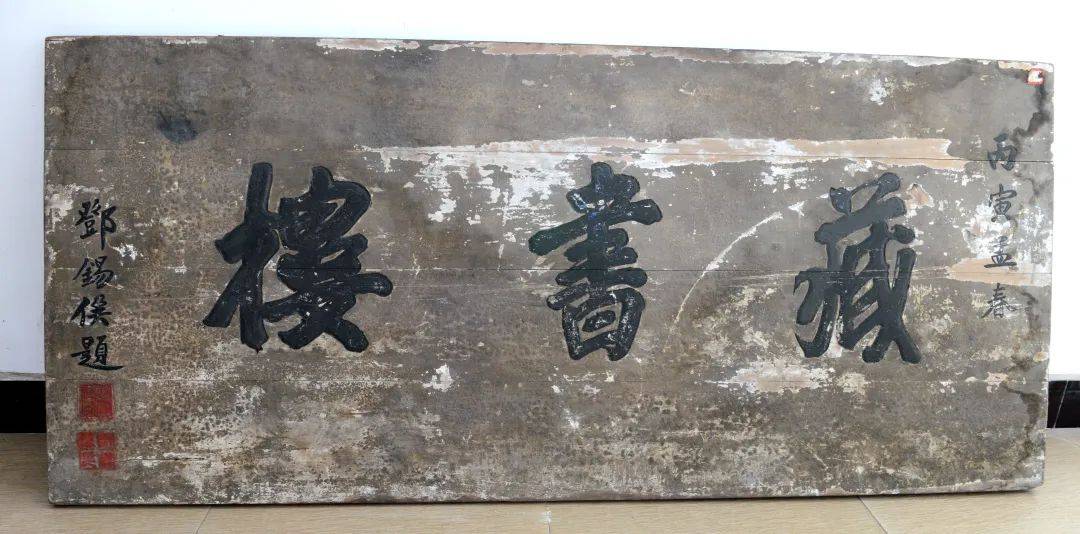 丙寅孟春
藏書樓
鄧錫侯題